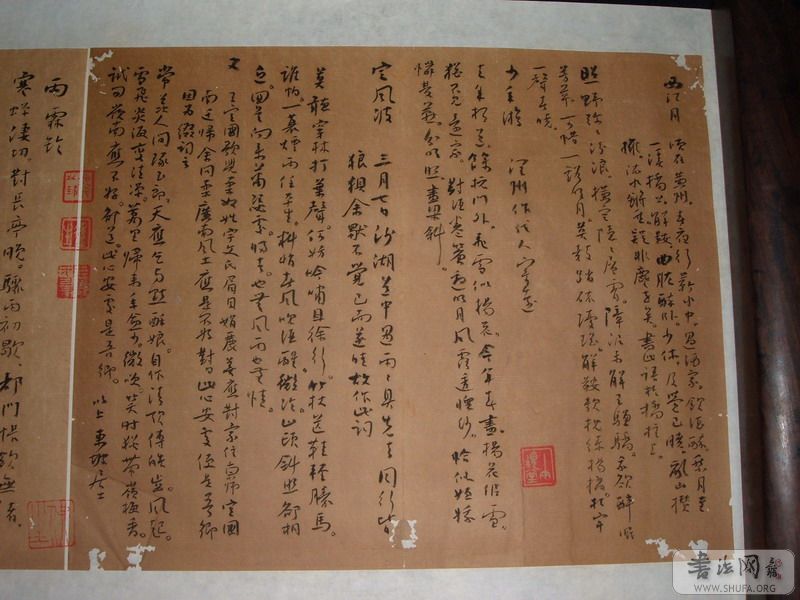 西江月 顷在黄州，春夜行蕲水中，过酒家，饮酒醉，乘月至
一溪桥上，解鞍，曲肱醉卧少休。及觉已晓，乱山攒
拥，流水锵然，疑非尘世矣。书此语于桥柱上。
照野弥弥浅浪，横空隐隐层霄。障泥未解玉骢骄，我欲醉眠
芳草。可惜一溪风月，莫教踏碎琼瑶。解鞍欹枕绿杨桥，杜宇
一声春晓。
少年游 润州作代人寄远
去年相送，余杭门外，飞雪似杨花。今年春尽，杨花似雪，
犹不见还家。对酒卷帘邀明月，风露透窗纱。恰似姮娥
怜双燕，分明照，画梁斜。
定风波 三月七日沙湖道中遇雨，雨具先去，同行皆
狼狈，余独不觉，已而遂晴，故作此词
莫听穿林打叶声，何妨吟啸且徐行。竹杖芒鞋轻胜马，
谁怕，一蓑烟雨任平生。料峭春风吹酒醒，微冷，山头斜照却相
迎。回首向来萧瑟处，归去，也无风雨也无晴。
又 王定国歌儿曰柔奴，姓宇文氏，眉目娟丽，善应对，家住京师。定国
南迁归，余问柔，广南风土应是不好，对曰此心安处便是吾乡
因为缀词云
常羡人间琢玉郎，天应乞与点酥娘。自作清歌传皓齿，风起，
雪飞炎海变清凉。万里归来年愈少，微笑，笑时犹带岭梅香。
试问岭南应不好，却道，此心安处是吾乡。 以上东坡居士
雨霖铃
寒蝉凄切，对长亭晚，骤雨初歇，都门帐饮无绪，
书法网
WWW.SHUFA.ORG